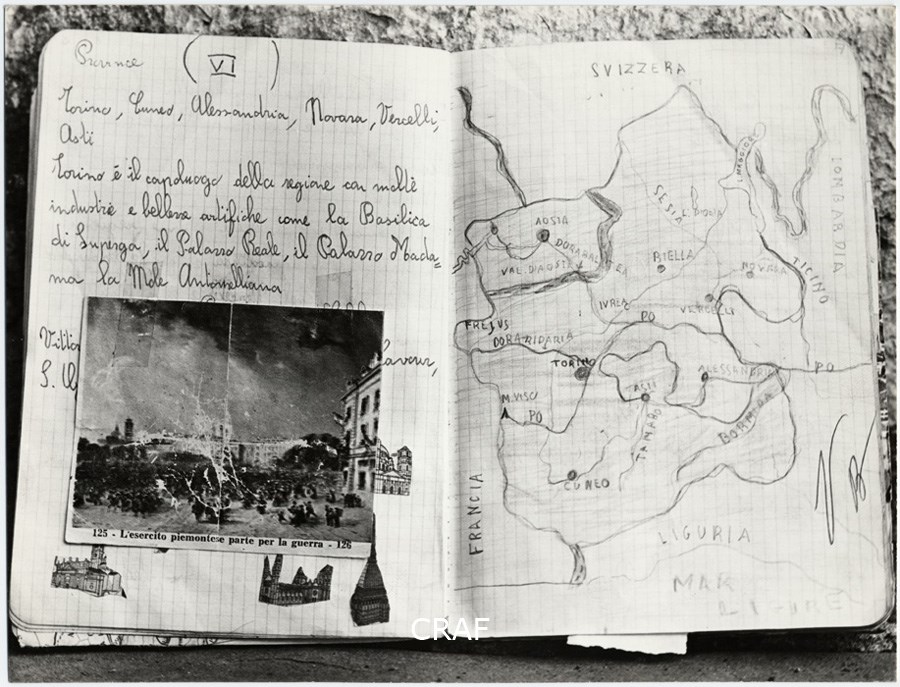 Province
VI
Torino, Cuneo, Alessandria, Novara, Vercelli,
Asti
Torino è il capoluogo della regione con molte
industrie e bellezze artifiche come la Basilica
di Superga, il Palazzo Reale, il Palazzo Mada=
ma la Mole Antonelliana
Cavour,
125 - L'esercito piemontese parte per la guerra - 126
SVIZZERA
L. MAGGIORE
LOMBARDIA
SESIA
AOSTA
DORA BALTEA
VAL. D'AOSTA
BIELLA
NOVARA
TICINO
IVREA
VERCELLI
FREJUS
PO
DORA RIPARIA
TORINO
ASTI
ALESSANDRIA
PO
M. VISO
PO
TANARO
BORMIDA
CUNEO
FRANCIA
LIGURIA
MAR
LIGURE
CRAF